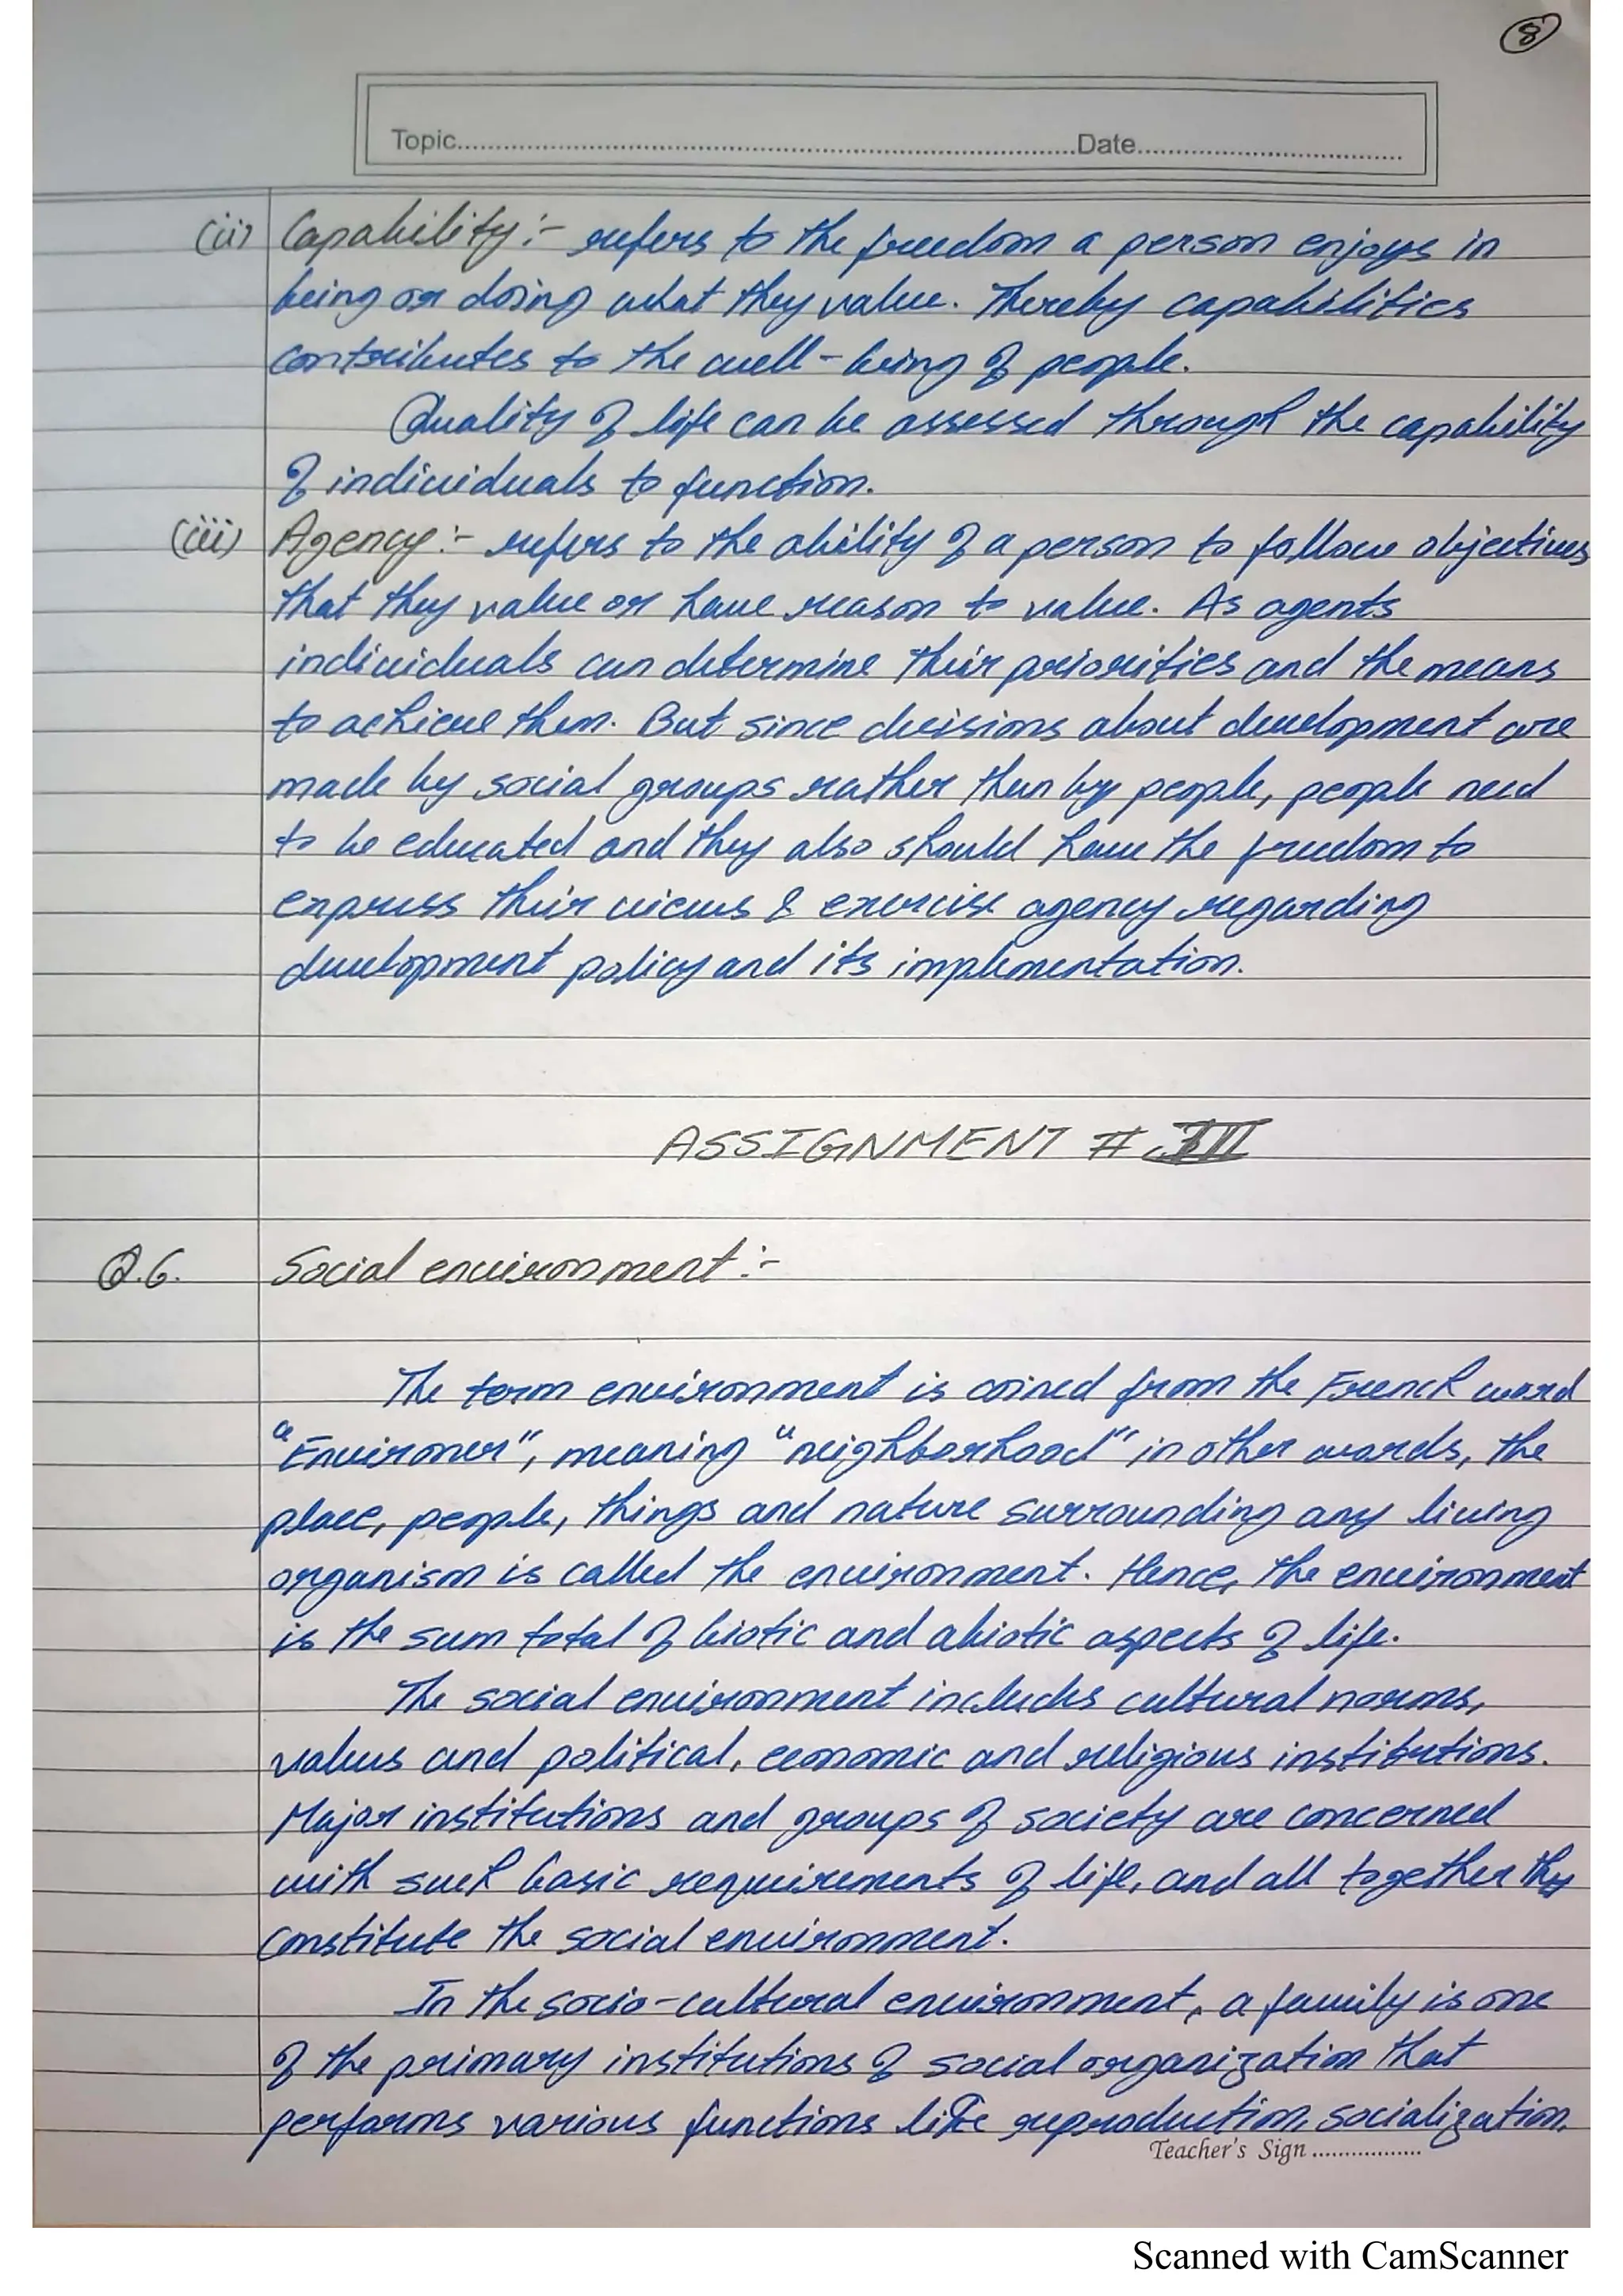 8
Topic..........Date..........
(ii) Capability:- refers to the freedom a person enjoys in
being or doing what they value. Thereby capabilities
contributes to the well-being of people.
Quality of life can be assessed through the capability
of individuals to function.
(iii) Agency:- refers to the ability of a person to follow objectives
that they value or have reason to value. As agents
individuals can determine their priorities and the means
to achieve them. But since decisions about development are
made by social groups rather than by people, people need
to be educated and they also should have the freedom to
express their views & exercise agency regarding
development policy and its implementation.
ASSIGNMENT # III
Q.6. Social environment:-
The term environment is coined from the French word
"Environer", meaning "neighborhood" in other words, the
place, people, things and nature surrounding any living
organism is called the environment. Hence, the environment
is the sum total of biotic and abiotic aspects of life.
The social environment includes cultural norms,
values and political, economic and religious institutions.
Major institutions and groups of society are concerned
with such basic requirements of life, and all together they
constitute the social environment.
In the socio-cultural environment, a family is one
of the primary institutions of social organization that
performs various functions like reproduction, socialization,
Teacher's Sign ..........
Scanned with CamScanner